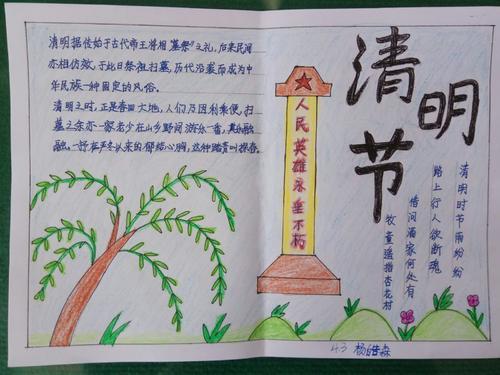 清明据传始于古代帝王将相"墓祭"之礼,后来民间
亦相仿效,于此日祭祖扫墓,历代沿袭而成为中
华民族一种固定的风俗。
清明之时,正是春回大地,人们乃因利乘便,扫
墓之余亦一家老少在山乡野间游乐一番,其乐融
融,一抒在严冬以来的郁结心胸,这种踏青叫探春。
人民英雄永垂不朽
清明节
清明时节雨纷纷
路上行人欲断魂
借问酒家何处有
牧童遥指杏花村
4.3 杨皓森